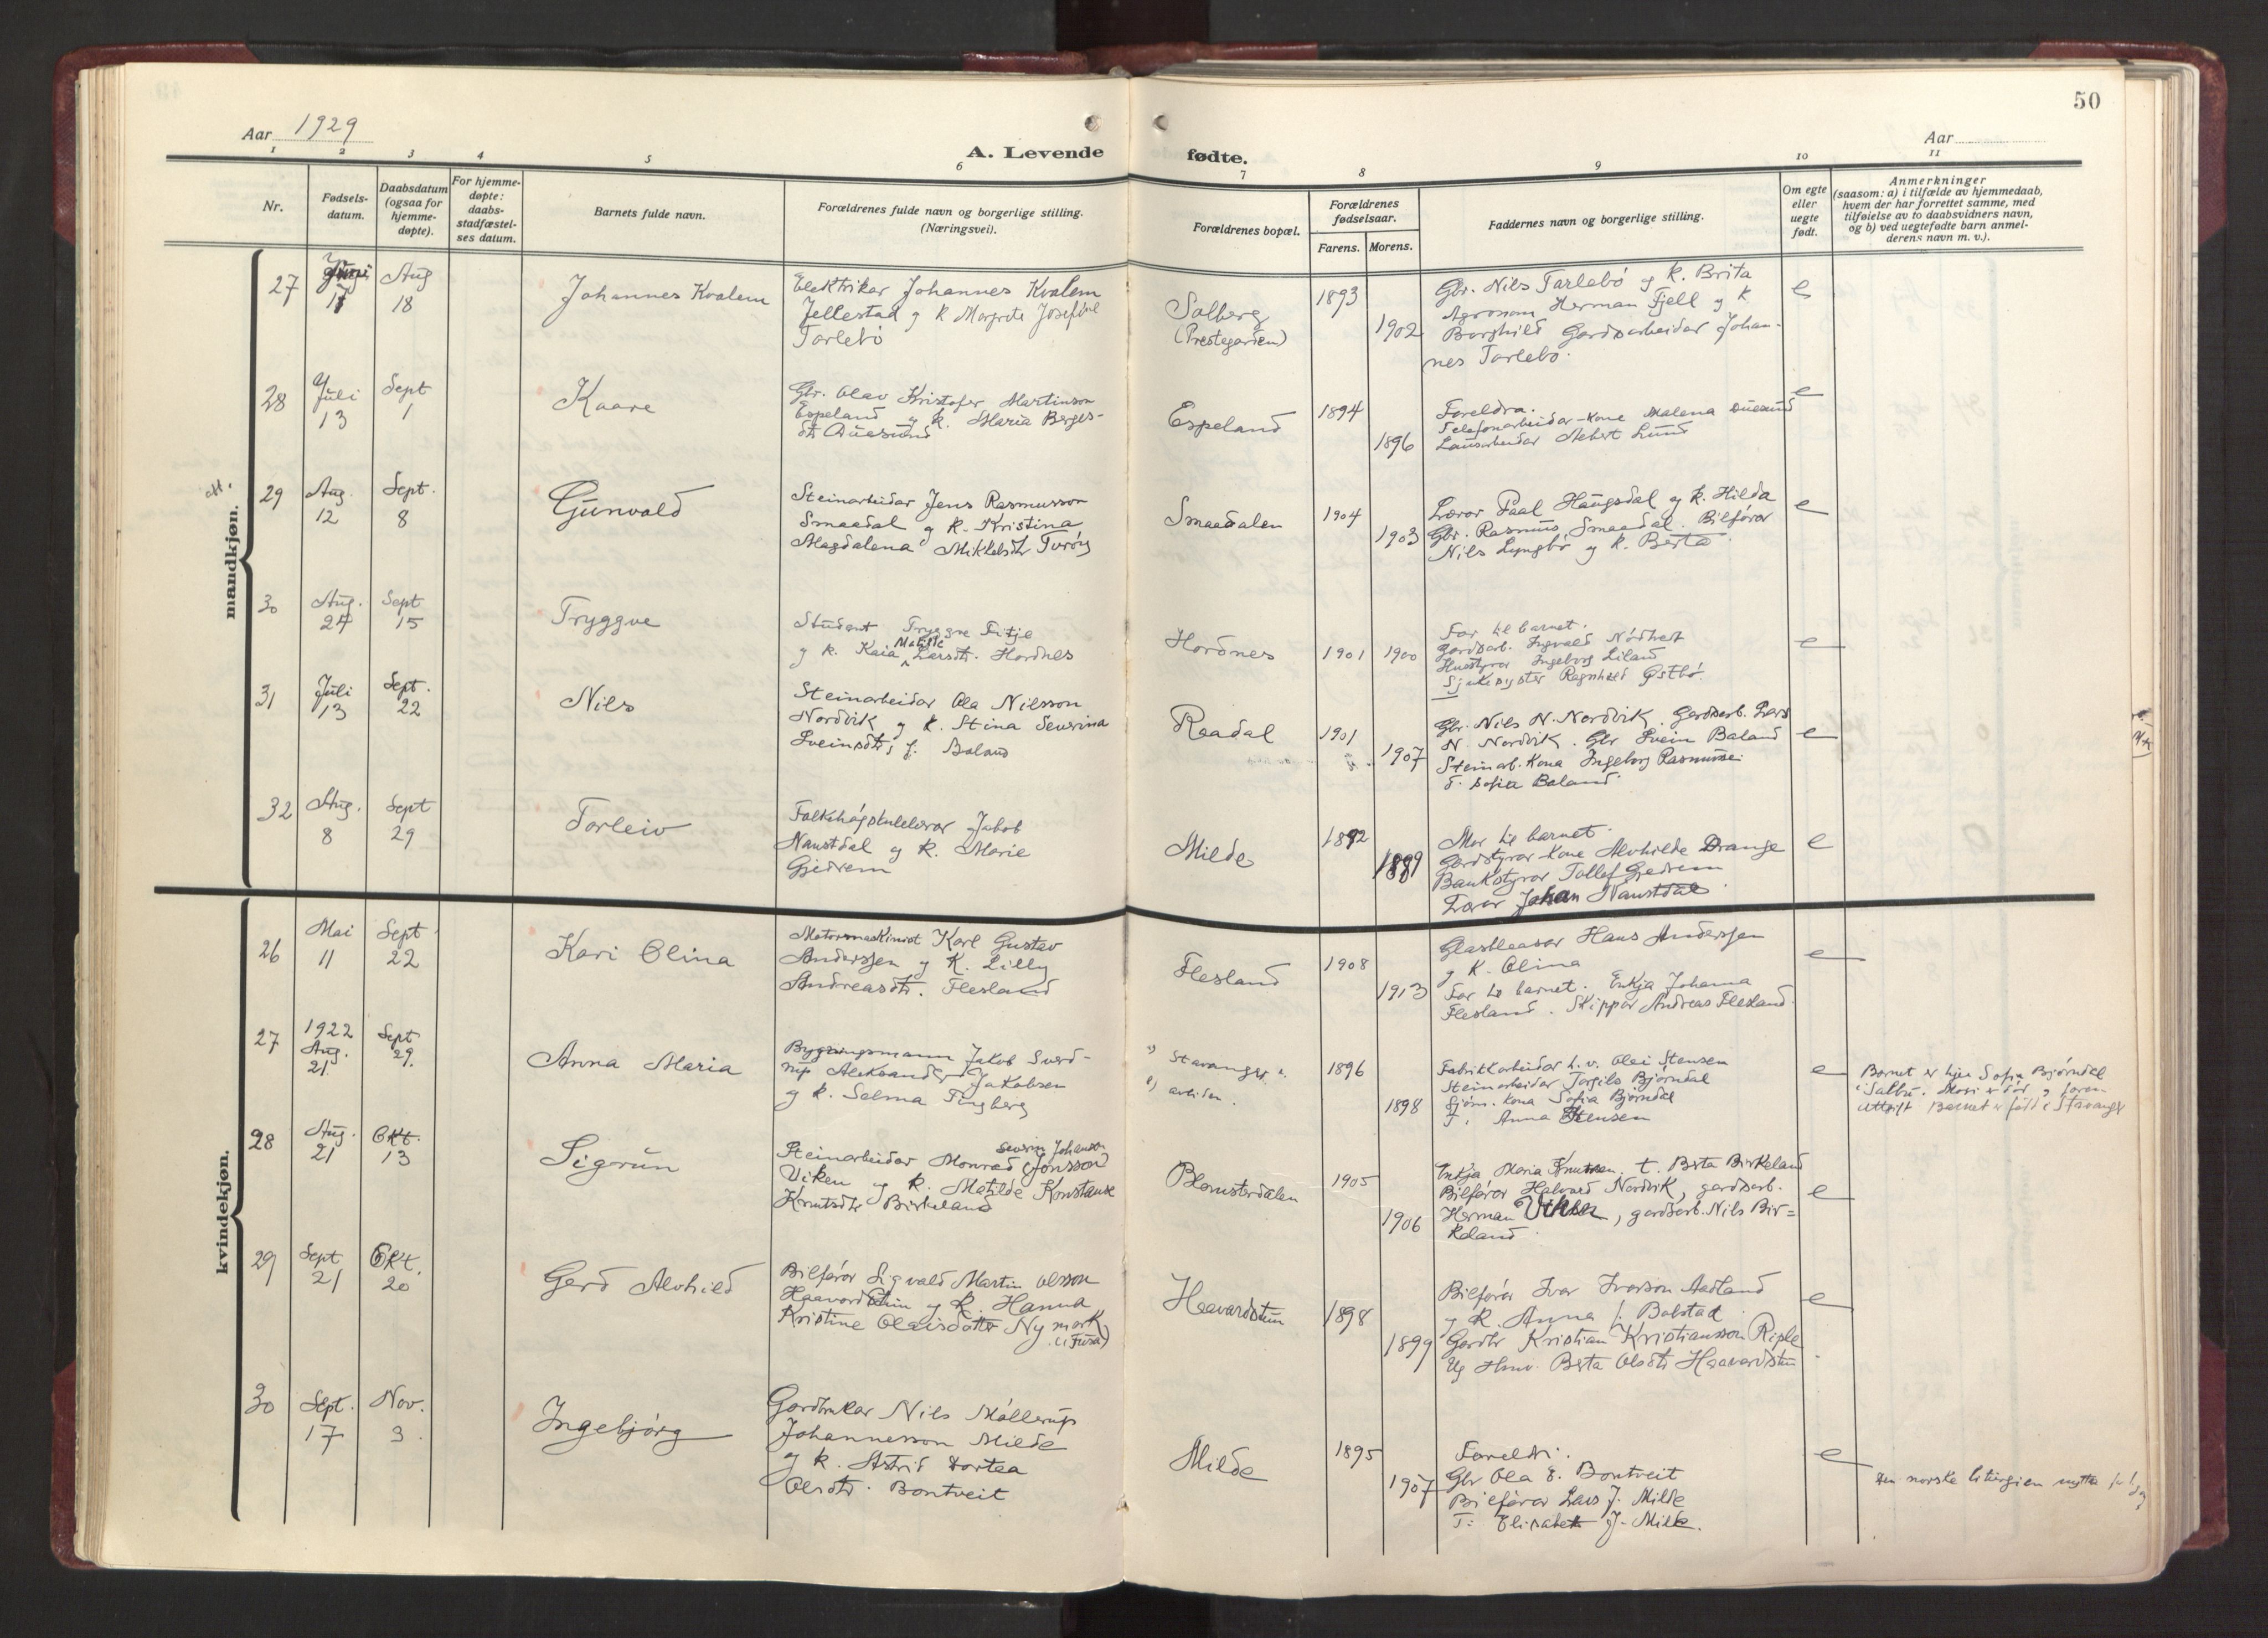 50
Aar 1929
Aar
A. Levende fødte.
1 2 3 4 5 6 7 8 9 10 11
Nr.
Fødsels-
datum.
Daabsdatum
(ogsaa for
hjemme-
døpte).
For hjemme-
døpte:
daabs-
stadfæstel-
ses datum.
Barnets fulde navn.
Forældrenes fulde navn og borgerlige stilling.
(Næringsvei).
Forældrenes bopæl.
Forældrenes
fødselsaar.
Farens. Morens.
Faddernes navn og borgerlige stilling.
Om egte
eller
uegte
født.
Anmerkninger
(saasom: a) i tilfælde av hjemmedaab,
hvem der har forrettet samme, med
tilføielse av to daabsvidners navn,
og b) ved uegtefødte barn anmel-
derens navn m. v.).
mandkjøn.
27
Juni
17
Aug
18
Johannes Kvalem
Elektrikar Johannes Kvalem
Jellestad og k Margrete Josefine
Tarlebø
Solberg
(Prestegarden)
1893
1902
Gbr. Nils Tarlebø og k. Brita
Agronom Herman Fjell og k
Borghild Gardsarbeidar Johan-
nes Tarlebø.
e
28
Juli
13
Sept
1
Kaare
Gbr. Olav Kristofer Martinson
Espeland og k. Maria Berges-
dtr Duesund
Espeland
1894
1896
Foreldra.
Telefonarbeidar-kone Malena Duesund
Lausarbeidar Lund
e
29
Aug.
12
Sept.
8
Gunvald
Steinarbeidar Jens Rasmusson
Smaadal og k. Kristina
Magdalena Mikkelsdtr Turøy
Smaadalen
1904
1903
Lærar Paal Haugsdal og k. Hilda
Gbr. Rasmus Smaadal. Bilførar
Nils Lyngbø og k. Berta.
e
30
Aug.
24
Sept
15
Tryggve
Student Tryggve Fitje
og k. Kaia Matilde Larsdtr. Hordnes
Hordnes
1901 1900
Far til barnet.
Gardsarb. Ingvald Nødtvet
Husstyrar Ingeborg Liland
Sjukesyster Ragnhild Østbø.
e
31
Juli
13
Sept.
22
Nils
Steinarbeidar Ola Nilsson
Nordvik og k. Stina Severina
Sveinsdtr, f. Boland
Raadal
1901
1907
Gbr. Nils N. Nordvik. Gardsarb. Lars
N. Nordvik. Gbr Svein Baland
Steinarb. Kona Ingeborg Rasmussen
T. Sofia Baland.
e
32
Aug.
8
Sept
29
Torleiv
Folkehøgskulelærar Jakob
Naustdal og k. Marie
Gjedrem
Milde
1892
1889
Mor til barnet.
Gardstyrar-kone Alvhilde Drange
Bankstyrar Tollef Gjedrem
Lærar Johan Naustdal.
e
kvindekjøn.
26
Mai
11
Sept
22
Kari Olina
Motormaskinist Karl Gustav
Anderssen og k. Lilly
Andreasdtr. Flesland
Flesland
1908
1913
Glasblaasar Hans Anderssen
og k. Olina
Far til barnet. Enkja Johanna
Flesland. Skippar Andreas Flesland.
e
27
1922
Aug.
21
Sept
29.
Anna Maria
Bygningsmann Jakob Sverd-
rup Aleksander Jakobsen
og k. Selma Tingberg
Stavanger
1896
1898
Fabrikkarbeidar h. v. Olai Stensen
Steinarbeidar Torgils Bjørndal
Sjøm. Kona Sofia Bjørndal
T. Anna Stensen
e
Barnet er hjå Sofia Bjørndal
i Sælbu. Mori er død og faren
Barnet er født i Stavanger
28
Aug.
21
Okt.
13
Sigrun
Severin Johanson
Steinarbeidar Monrad (Jonsson)
Viken og k. Matilde Konstanse
Knutsdtr Birkeland
Blomsterdalen
1905
1906
Enkja Maria Knutsen. t. Berta Birkeland
Bilførar Halvard Nordvik, gardsarb.
Herman Viken, gardsarb. Nils Bir=
keland
e
29
Sept
21
Okt.
20
Gerd Alvhild
Bilførar Sigvald Martin Olsson
Haavardstun og k. Hanna
Kristine Olaisdotter Nymark
(i Fusa)
Haavardstun
1898
1899
Bilførar Ivar Ivarson Aadland
og k. Anna f. Bolstad.
Gardbr Kristian Kristiansson Riple
Ug Berta Olsdtr Haavardstun
e
30
Sept.
17
Nov.
3.
Ingebjørg
Gardbrukar Nils Møllerup
Johannesson Milde
og k. Astrid Dortea
Olsdtr. Bontveit
Milde
1895
1907
Foreldri.
Gbr Ola E. Bontveit
Bilførar Lars J. Milde
T: Elisabet J. Milde.
e
Den norske liturgien nytta